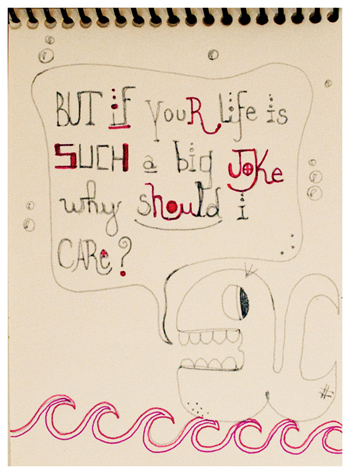 BUT if youR life is
SUCH a big JOKe
why should i
CARe?